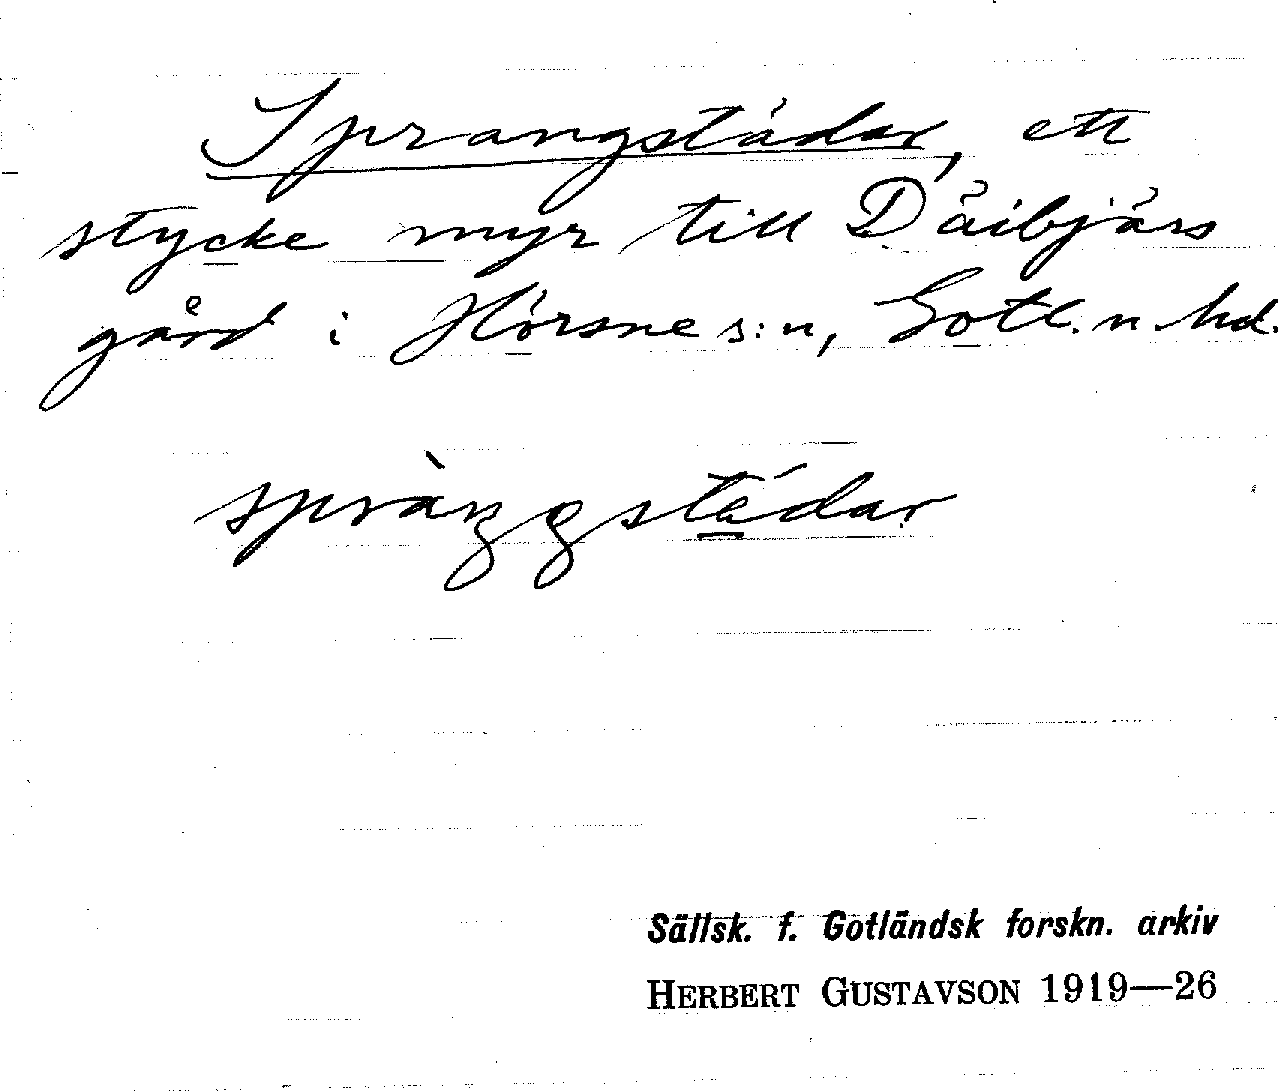 Sprangstädar, ett
stycke myr till Däibjärs
gård i Hörsne s:n, Gotl. n. hd.
spràŋgstädar
Sällsk. f. Gotländsk forskn. arkiv
HERBERT GUSTAVSON 1919—26